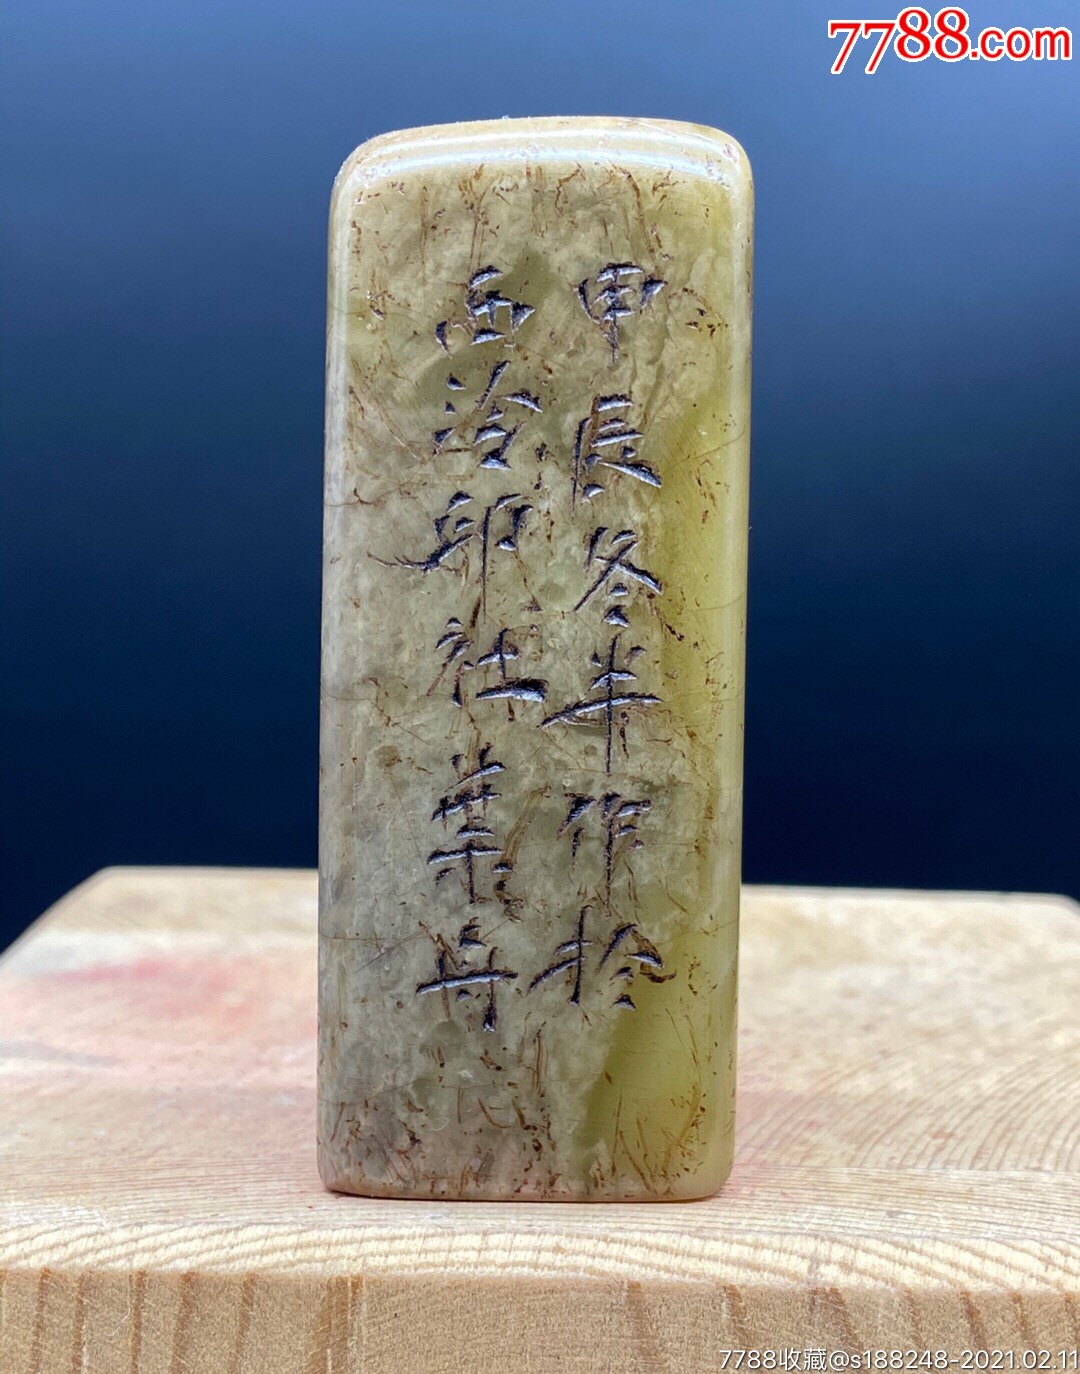 7788.com
甲辰冬半作於
西泠印社葉舟
7788收藏@s188248-2021.02.11